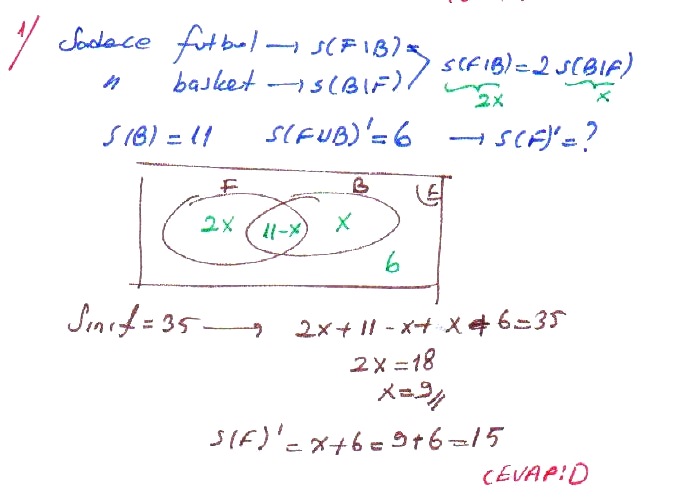 1/ Sadece futbol → s(F\B) =
" basket → s(B\F)
s(F\B) = 2 s(B\F)
2x x
s(B) = 11 s(F∪B)' = 6 → s(F)' = ?
F B E
2x 11-x x
6
Sınıf = 35 → 2x + 11 - x + x + 6 = 35
2x = 18
x = 9//
s(F)' = x + 6 = 9 + 6 = 15
CEVAP: D